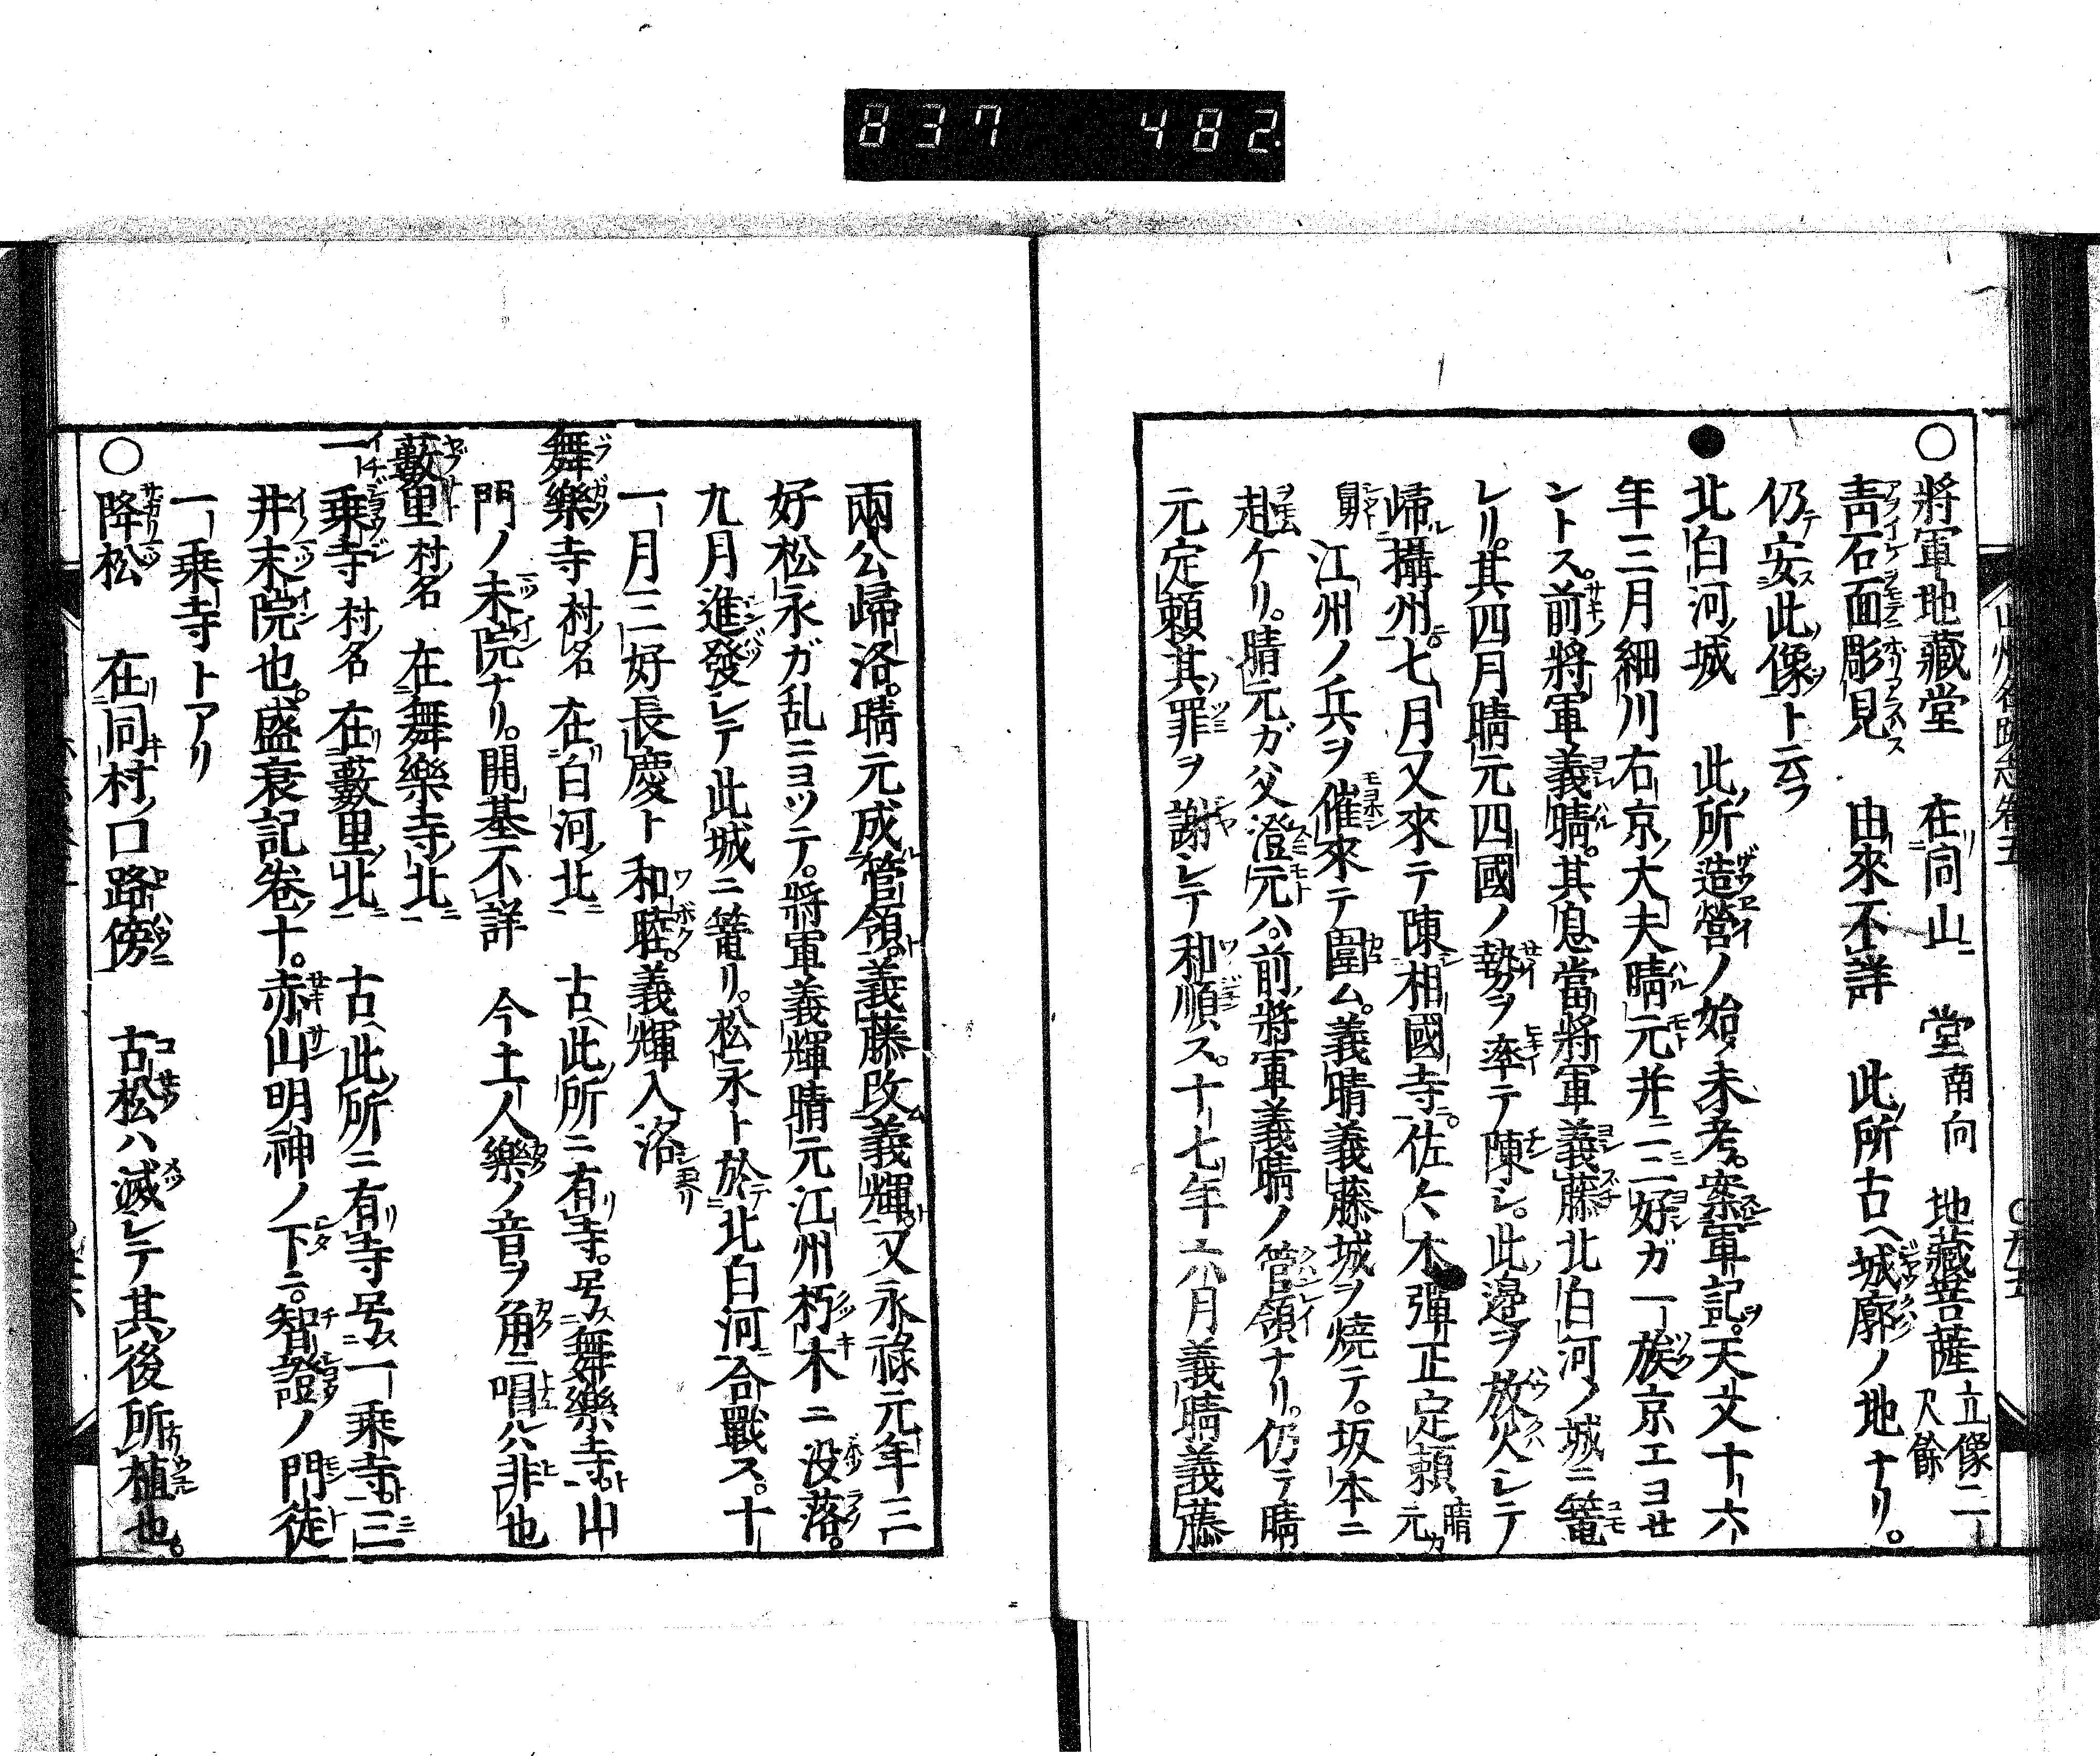 837 482
○將軍地藏堂 在同山 堂南向 地藏菩薩立像二尺餘
青石面彫見 由來不詳 此所古ヘ城廓ノ地ナリ。
仍テ安此像ト云フ
●北白河ノ城 此所造營ノ始未考。案軍記。天文十六
年三月細川右京大夫晴元并ニ三好ガ一族京エヨセ
ントス。前將軍義晴。其息當將軍義藤北白河ノ城ニ篭
レリ。其四月晴元四國ノ勢ヲ率テ陳シ。此邊ヲ放火シテ
歸攝州。七月又來テ陳相國寺。佐々木彈正定頼晴元カ
舅 江州ノ兵ヲ催來テ圍ム。義晴義藤城ヲ燒テ。坂本ニ
越ケリ。晴元ガ父澄元ハ。前將軍義晴ノ管領ナリ。仍テ晴
元定頼其罪ヲ謝シテ和順ス。十七年六月義晴義藤
兩公歸洛。晴元成管領。義藤改義輝。又永祿元年三
好松永ガ乱ニヨツテ。將軍義輝晴元江州朽木ニ没落。
九月進發シテ此城ニ篭リ。松永ト於北白河合戰ス。十
一月三好長慶ト和睦。義輝入洛
舞樂寺村名 在白河ノ北 古ヘ此所ニ有寺。号舞樂寺。山
門ノ末院ナリ。開基不詳 今土人樂ノ音ヲ角ニ唱ルハ非也
藪里村名 在舞樂寺ノ北
一乘寺村名 在藪里ノ北 古ヘ此所ニ有寺号一乘寺。三
井ノ末院也。盛衰記卷十。赤山明神ノ下ニ。智證ノ門徒
一乘寺トアリ
○降松 在同村ノ口路傍 古松ハ滅シテ其後所植也。